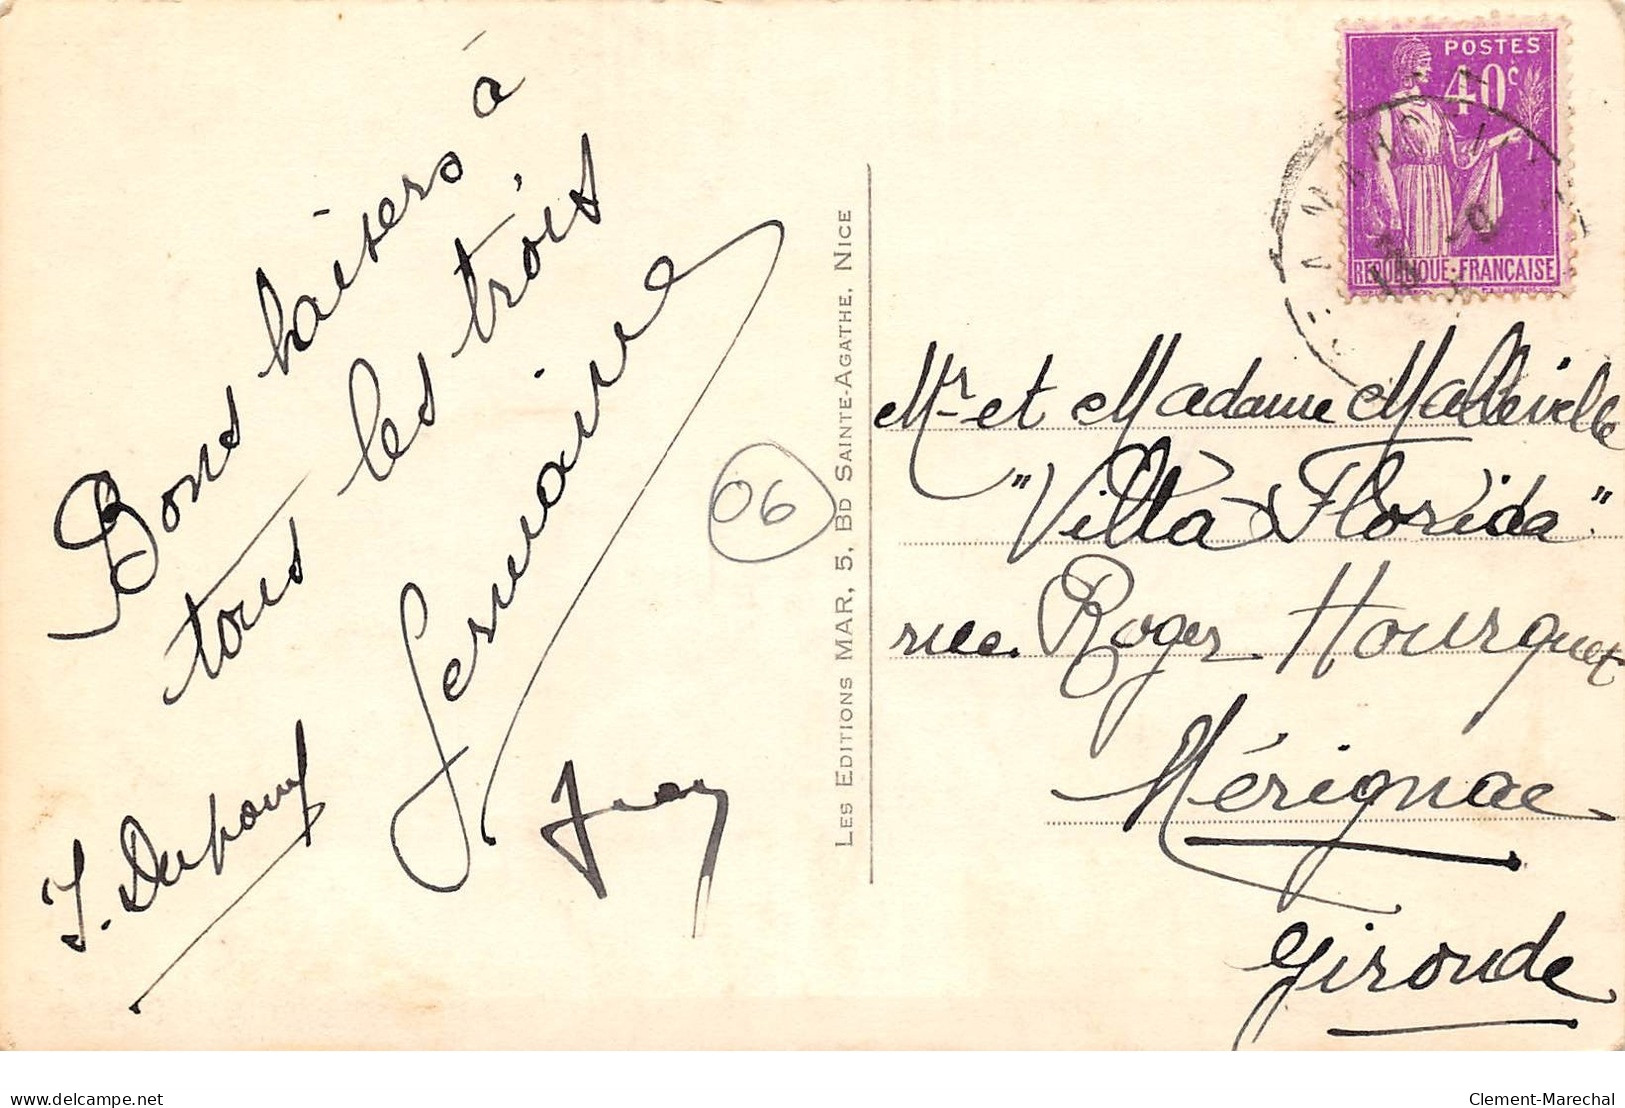 Bons baisers à
tous les trois
Germaine
06
LES EDITIONS MAR, 5, BD SAINTE-AGATHE, NICE
POSTES
40c
REPUBLIQUE·FRANCAISE
Mr et Madame Malleville
"Villa Florida"
rue Roger Hourquet
Mérignac
Gironde
delcampe.net
Clement-Marechal